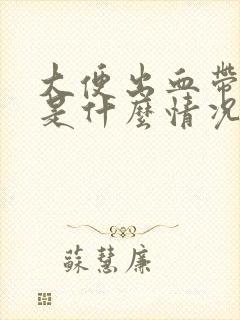 大便出血帶
是什麼情況
蘇慧廉